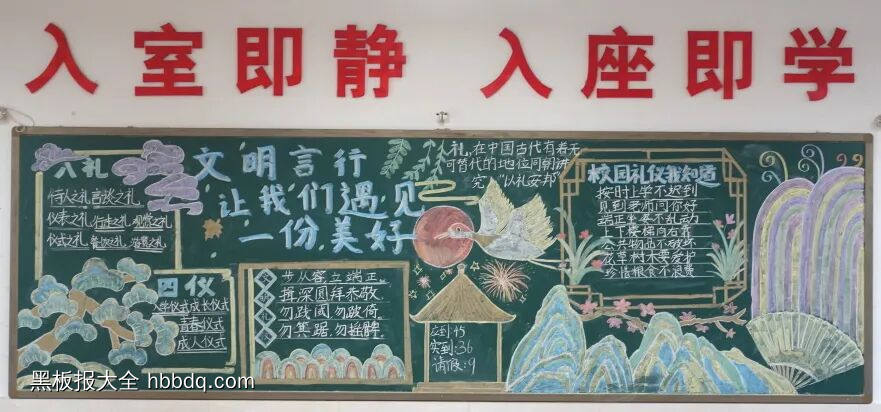 入室即静 入座即学
八礼
待人之礼 言谈之礼
仪表之礼 行走之礼 观赏之礼
仪式之礼 餐饮之礼 游览之礼
四仪
入学仪式 成长仪式
青春仪式
成人仪式
文明言行
让我们遇见
一份美好
步从容,立端正。
揖深圆,拜恭敬。
勿践阈,勿跛倚。
勿箕踞,勿摇髀。
礼,在中国古代有着无
可替代的地位同朝讲
究“以礼安邦”
应到:45
实到:36
请假:9
校园礼仪我知道
按时上学不迟到
见到老师问你好
端正坐姿不乱动
上下楼梯向右靠
公共物品不破坏
花草树木要爱护
珍惜粮食不浪费
黑板报大全 hbbdq.com